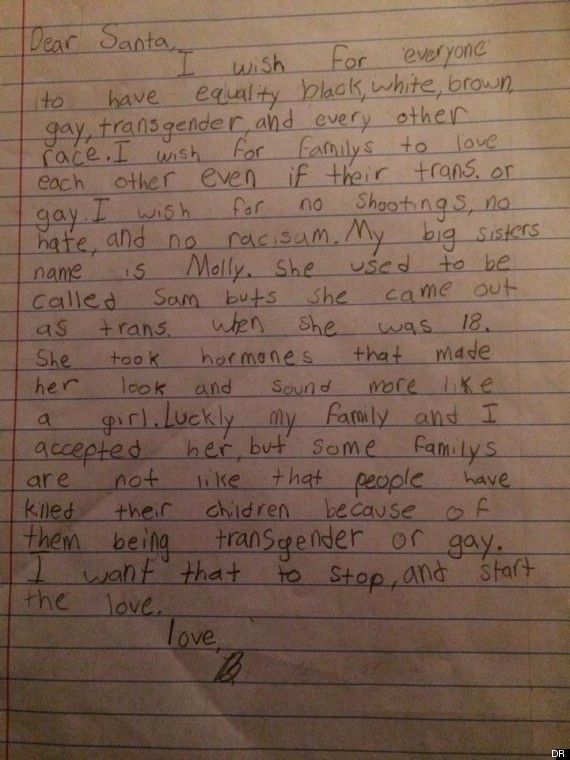 Dear Santa,
I wish for everyone
to have equality black, white, brown
gay, transgender, and every other
race. I wish for familys to love
each other even if their trans. or
gay. I wish for no shootings, no
hate, and no racisam. My big sisters
name is Molly. She used to be
called Sam buts she came out
as trans. when she was 18.
She took hormones that made
her look and sound more like
a girl. Luckly my family and I
accepted her, but some familys
are not like that people have
killed their children because of
them being transgender or gay.
I want that to stop, and start
the love.
love,
DR